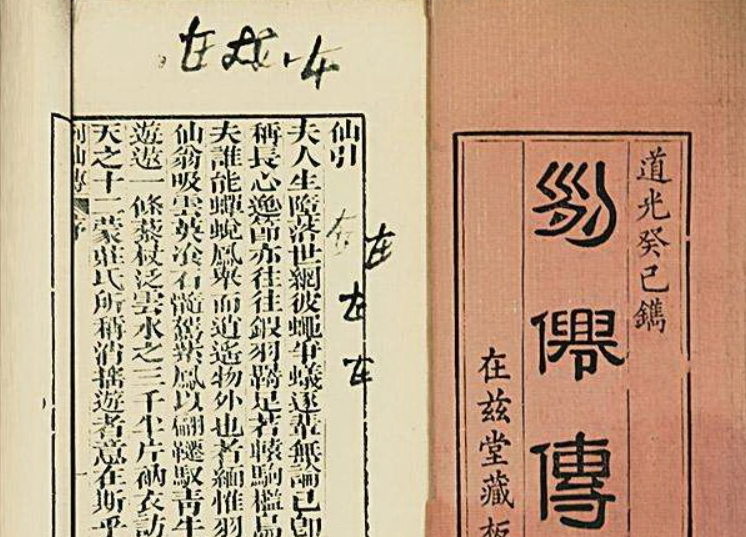 道光癸巳鐫
列僊傳
在兹堂藏板
仙引
夫人生墮落世網彼蠅爭蟻逐輩無論已卽
稱長心逸節亦往往鎩羽羇足若轅駒檻
夫誰能蟬蛻鳳舉而逍遙物外也者緬惟羽
仙翁吸雲英冶石髓駕紫鳳以翩躚馭青牛
遊遨一條藜杖泛雲水之三千片衲衣訪
天之十二蒙莊氏所稱消搖遊者意在斯乎
列仙傳 序
在
在
在
在
在